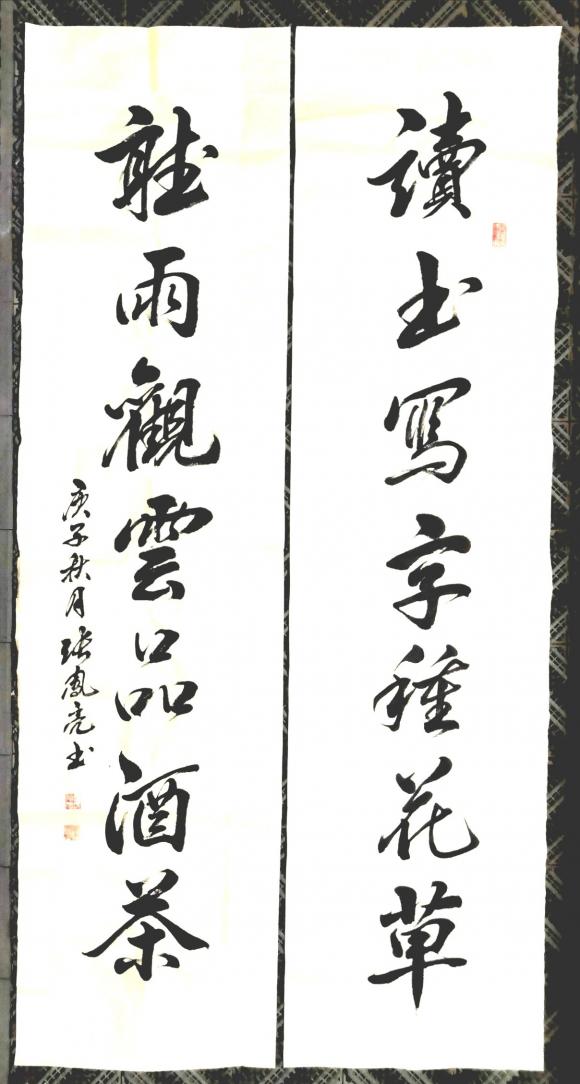 讀书写字種花草
聽雨觀雲品酒茶
庚子秋月张鳳亮书